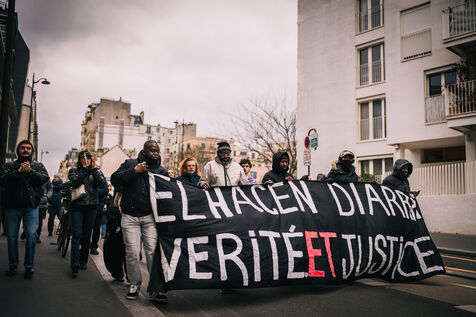 EL HACEN DIARRA
VERITÉ ET JUSTICE